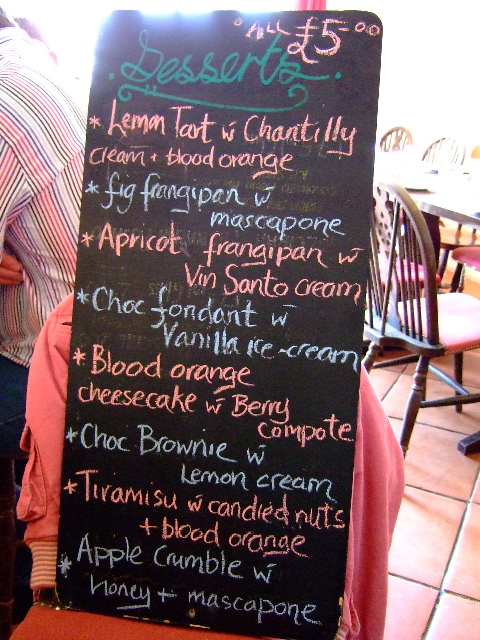 All £5.00
Desserts
* Lemon Tart w̄ Chantilly
cream + blood orange
* fig frangipan w̄
mascapone
* Apricot frangipan w̄
Vin Santo cream
* Choc fondant w̄
Vanilla ice-cream
* Blood orange
cheesecake w̄ Berry
compote
* Choc Brownie w̄
Lemon cream
* Tiramisu w̄ candied nuts
+ blood orange
* Apple Crumble w̄
Honey + mascapone